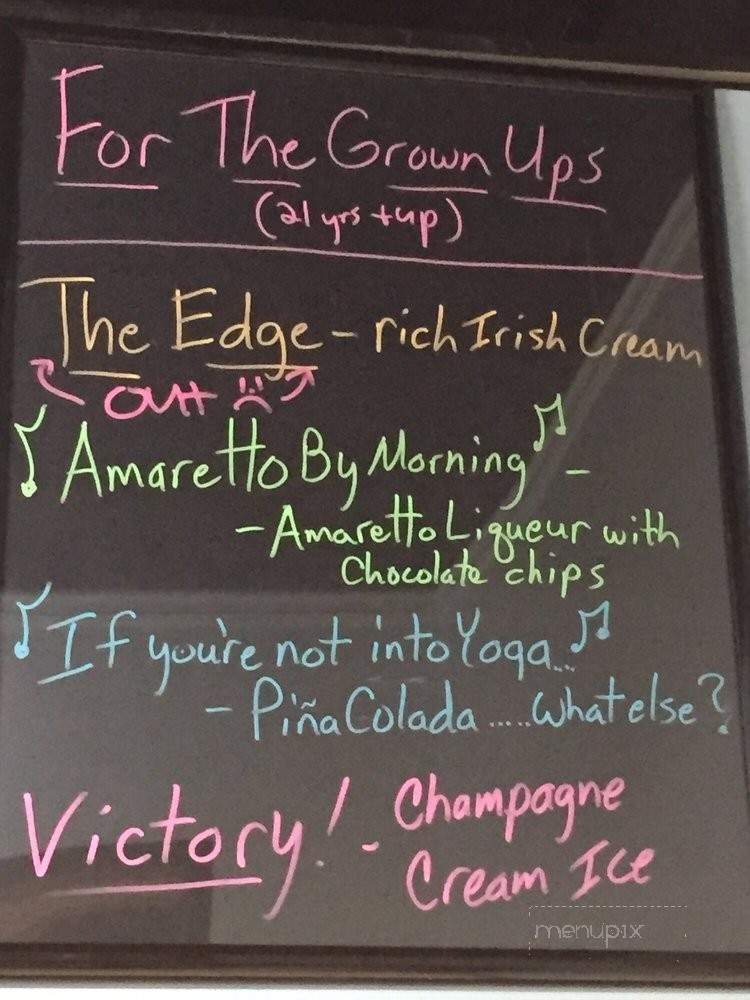 For The Grown Ups
(21 yrs + up)
The Edge - rich Irish Cream
Out
Amaretto By Morning -
- Amaretto Liqueur with
Chocolate chips
If you're not into Yoga...
- Piña Colada ..... What else?
Victory! - Champagne
Cream Ice
menupix